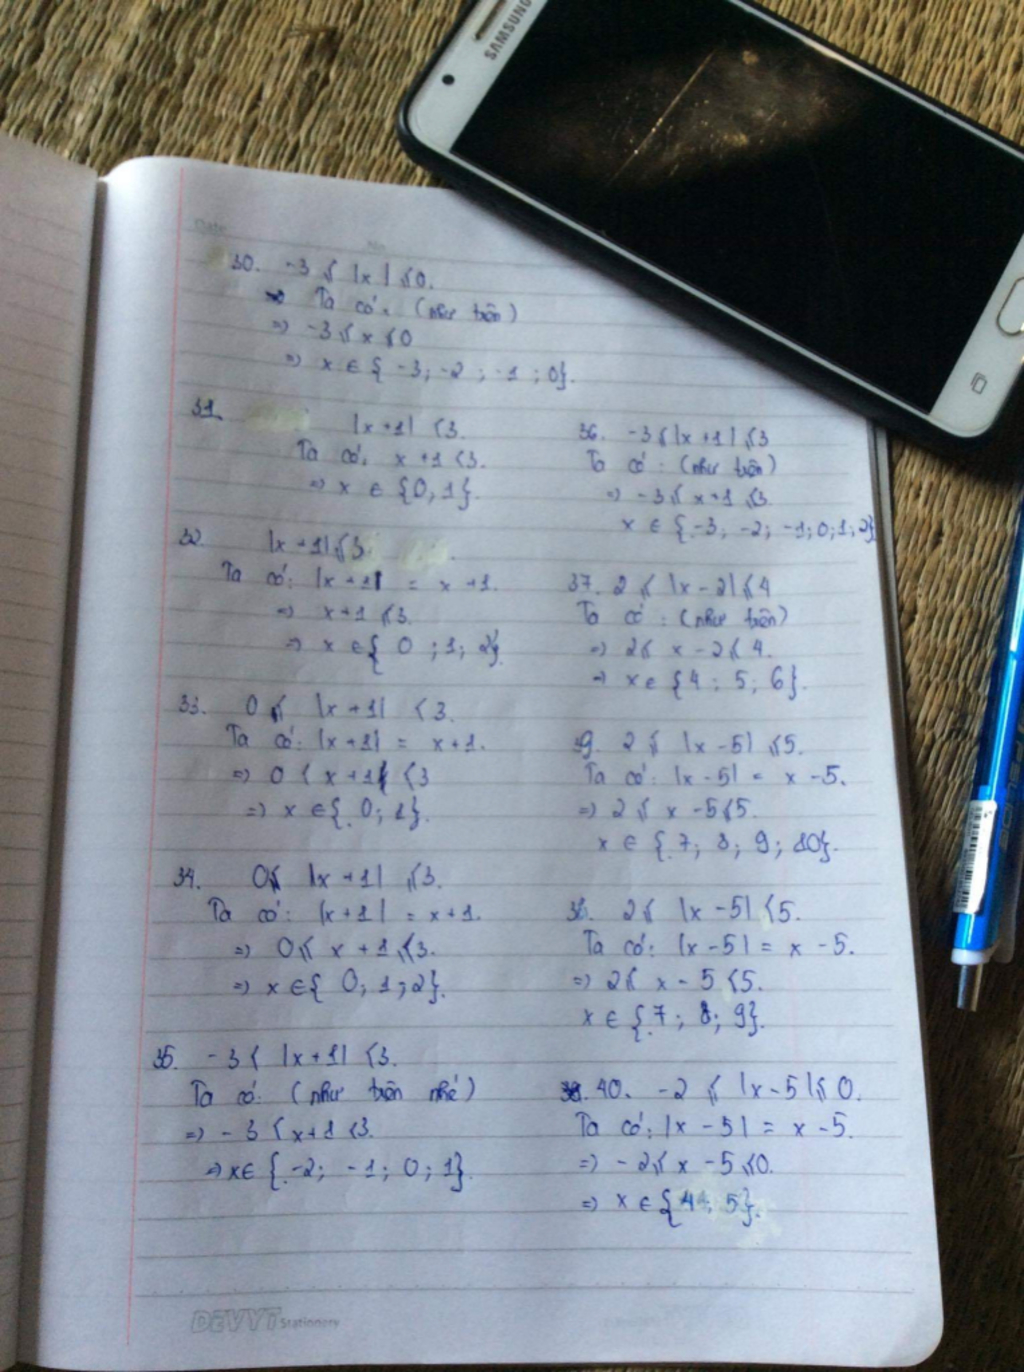 SAMSUNG
Date
No
30. -3 ≤ |x| ≤ 0.
Ta có: (như trên)
=> -3 ≤ x ≤ 0
=> x ∈ { -3; -2 ; -1 ; 0}.
31. |x+1| < 3.
Ta có: x+1 < 3.
=> x ∈ {0, 1}.
32. |x+1| ≤ 3
Ta có: |x+1| = x+1.
=> x+1 ≤ 3.
=> x ∈ { 0 ; 1; 2}.
33. 0 ≤ |x+1| < 3.
Ta có: |x+1| = x+1.
=> 0 < x+1 < 3
=> x ∈ { 0; 1}.
34. 0 ≤ |x+1| ≤ 3.
Ta có: |x+1| = x+1.
=> 0 ≤ x+1 ≤ 3.
=> x ∈ { 0; 1; 2}.
35. -3 < |x+1| < 3.
Ta có: (như trên nhé)
=> -3 < x+1 < 3.
=> x ∈ { -2; -1; 0; 1}.
36. -3 ≤ |x+1| ≤ 3
Ta có: (như trên)
=> -3 ≤ x+1 ≤ 3.
x ∈ { -3; -2; -1; 0; 1; 2}
37. 2 ≤ |x-2| ≤ 4
Ta có: (như trên)
=> 2 ≤ x-2 ≤ 4.
=> x ∈ {4 ; 5; 6}.
39. 2 ≤ |x-5| ≤ 5.
Ta có: |x-5| = x-5.
=> 2 ≤ x-5 ≤ 5.
x ∈ { 7; 8; 9; 10}.
2 ≤ |x-5| < 5.
Ta có: |x-5| = x-5.
=> 2 ≤ x-5 < 5.
x ∈ { 7; 8; 9}.
40. -2 ≤ |x-5| ≤ 0.
Ta có: |x-5| = x-5.
=> -2 ≤ x-5 ≤ 0.
=> x ∈ { 4; 5}.
DEVYT Stationery